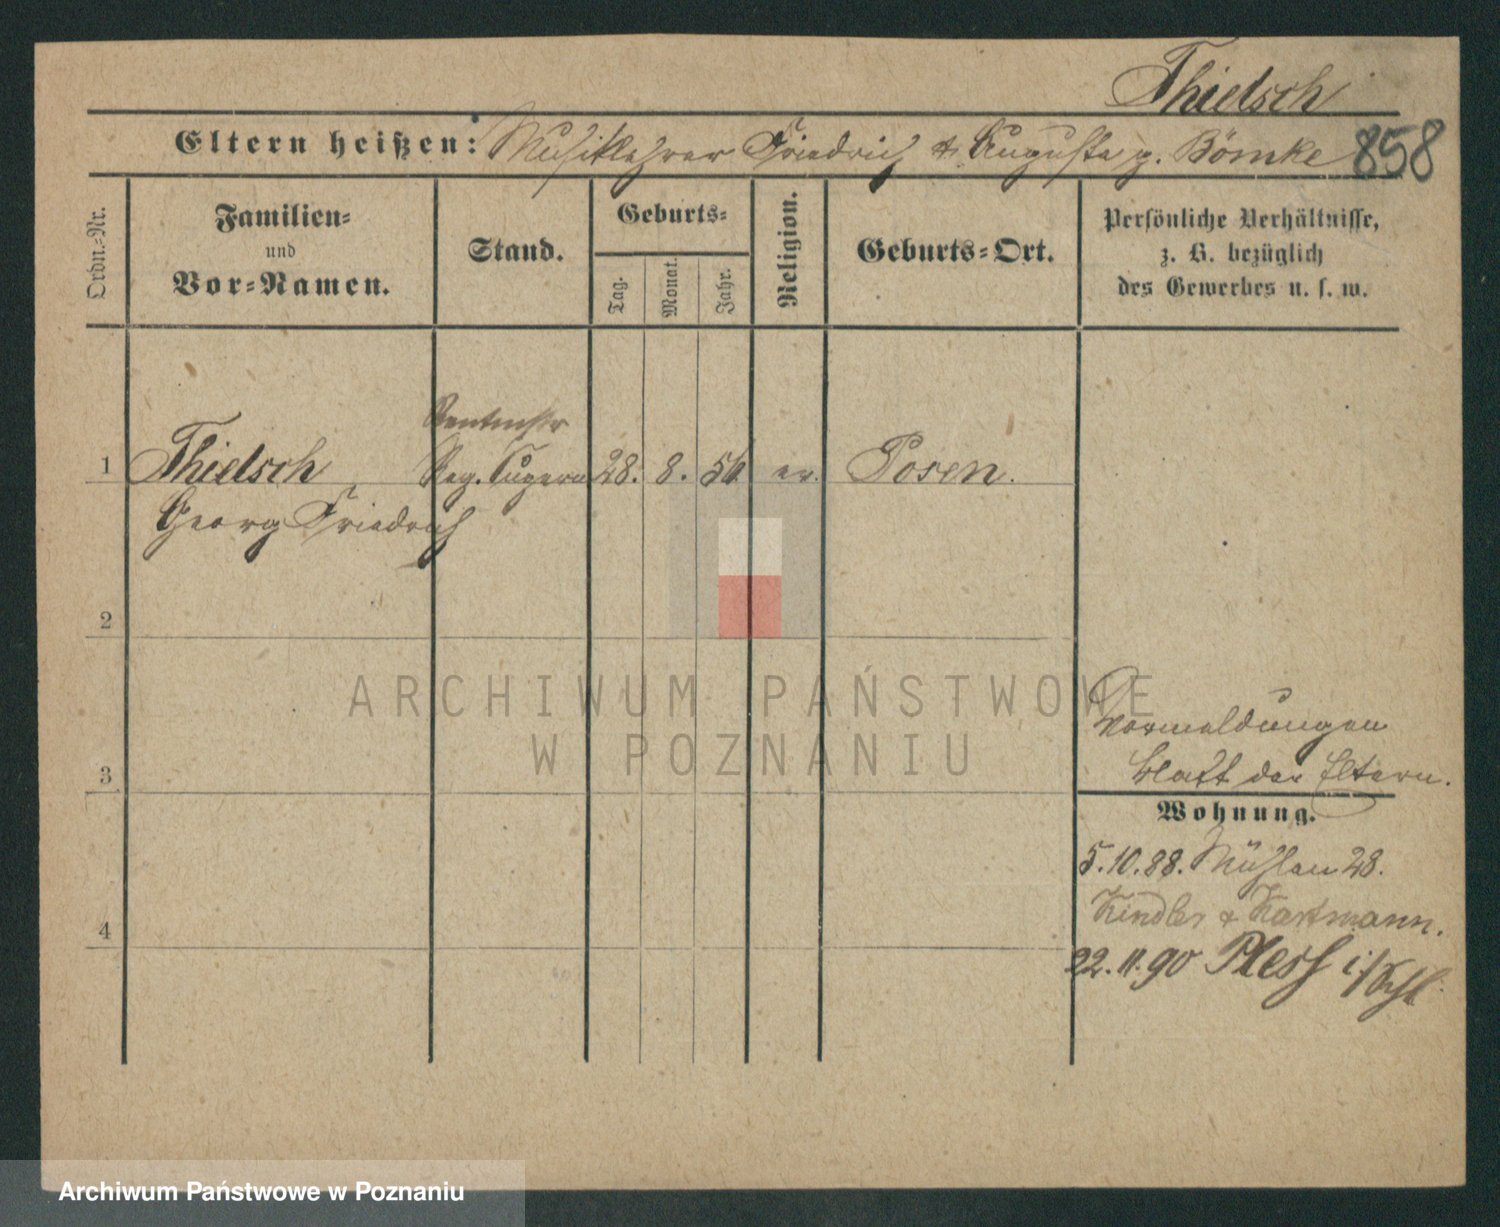 Thielsch
Eltern heißen: Musiklehrer Friedrich & Auguste g. Bömke 858
Ordn.-Nr.
Familien-
und
Vor-Namen.
Stand.
Geburts-
Tag.
Monat.
Jahr.
Religion.
Geburts-Ort.
Persönliche Verhältnisse,
z. B. bezüglich
des Gewerbes u. s. w.
Rentmstr
1 Thielsch Reg. Supern 28. 8. 56 ev. Posen.
Georg Friedrich
2
ARCHIWUM PAŃSTWOWE
W POZNANIU
Vormeldungen
Blatt der Eltern.
3
Wohnung.
5.10.88. Mühlen 28.
Kindler & Kartmann.
4
22.11.90 Pless i/Schl.
Archiwum Państwowe w Poznaniu